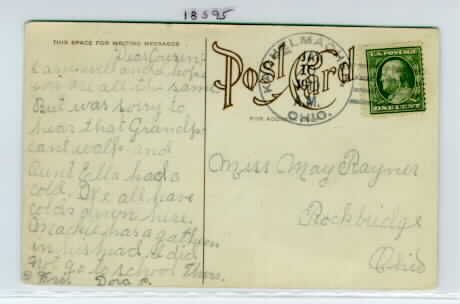 18 S 95
THIS SPACE FOR WRITING MESSAGES
Post Card
Dear Cousin
I am well and hope
you are all the same
But was sorry to
hear that Grandpa
cant walk and
Aunt Ella had a
cold. We all have
colds down here.
has a gatherin
in his head. I did
not go to school Thurs.
Fri. Dora
KACHELMACHER
10
A.M.
OHIO.
U.S. POSTAGE
ONE CENT
FOR ADDRESS
Miss May Rayner
Rockbridge
Ohio